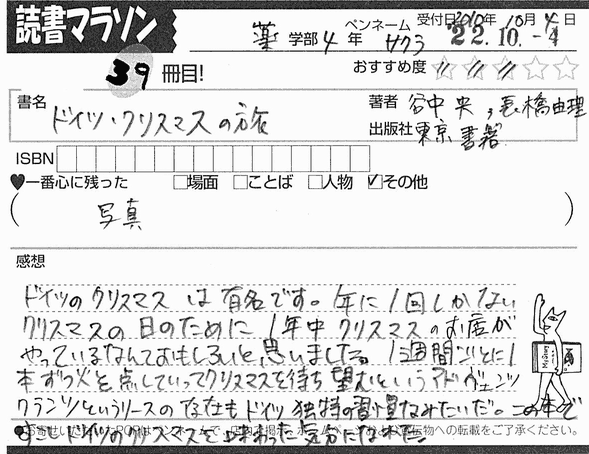 読書マラソン
ペンネーム 受付日2010年10月4日
薬 学部 4 年 サクラ 22.10.-4
39 冊目!
おすすめ度 ☆☆☆☆☆
書名
ドイツ・クリスマスの旅
著者 谷中央,長橋由理
出版社 東京書籍
ISBN
♥一番心に残った □場面 □ことば □人物 ☑その他
(写真)
感想
ドイツのクリスマスは有名です。1年に1回しかない
クリスマスの日のために1年中クリスマスのお店が
やっているなんておもしろいと思いました。1週間ごとに1
本ずつ火を点していってクリスマスを待ち望むというアドヴェンツ
クランツというリースの存在もドイツ独特の習慣みたいだ。この本で
すこしドイツのクリスマスを味わった気分になれた。
●お寄せいただいたPOPはペンネームで、店内掲示・ホームページおよび宣伝物への転載をご了承ください。